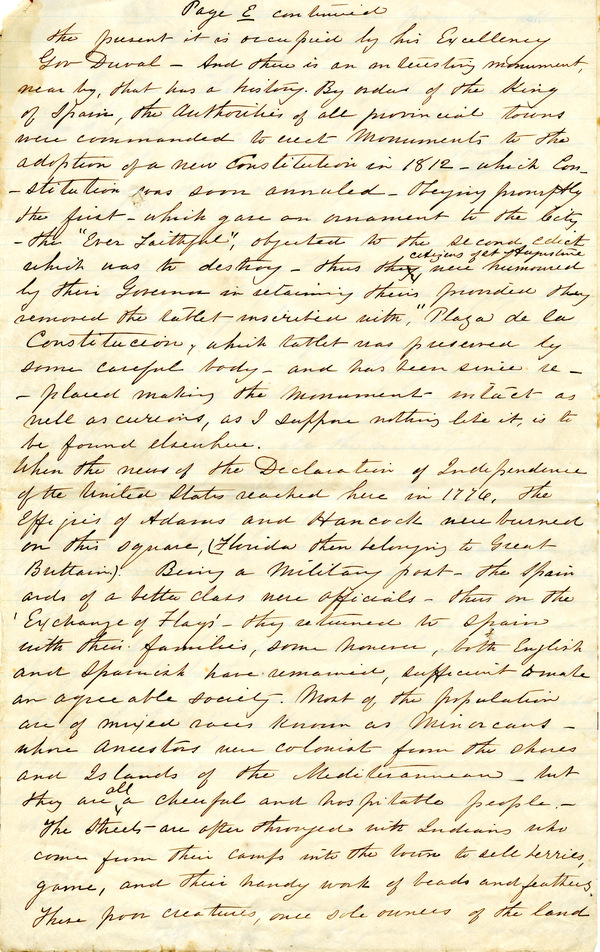 Page E continued
the present it is occupied by his Excellency
Gov Duval – And there is an interesting monument,
near by, that has a history. By order of the King
of Spain, the Authorities of all provincial towns
were commanded to erect Monuments to the
adoption of a new Constitution in 1812 – which Con-
-stitution was soon annuled – Obeying promptly
the first – which gave an ornament to the City,
– the "Ever Faithful", objected to the second edict
which was to destroy – thus the citizens of St Augustine were humoured
by their Governor in retaining theirs provided they
removed the tablet inscribed with, "Plaza de la
Constitucion, which tablet was preserved by
some careful body – and has been since re-
-placed making the monument intact as
well as curious, as I suppose nothing like it, is to
be found elsewhere.
When the news of the Declaration of Independence
of the United States reached here in 1776, the
Effigies of Adams and Hancock were burned
on this square, (Florida then belonging to Great
Brittain). Being a Military post – the Spain
ards of a better class were officials – thus on the
'Exchange of Flags' – they returned to Spain
with their families, some however, both English
and Spanish have remained, sufficient to make
an agreeable society. Most of the population
are of mixed races known as Minorcans –
whose ancestors were colonist from the shores
and Islands of the Mediterannean – but
they are all a cheerful and hospitable people. –
The Streets are often thronged with Indians who
come from their camps into the town to sell berries,
game, and their handy work of beads and feathers.
These poor creatures, once sole owners of the land